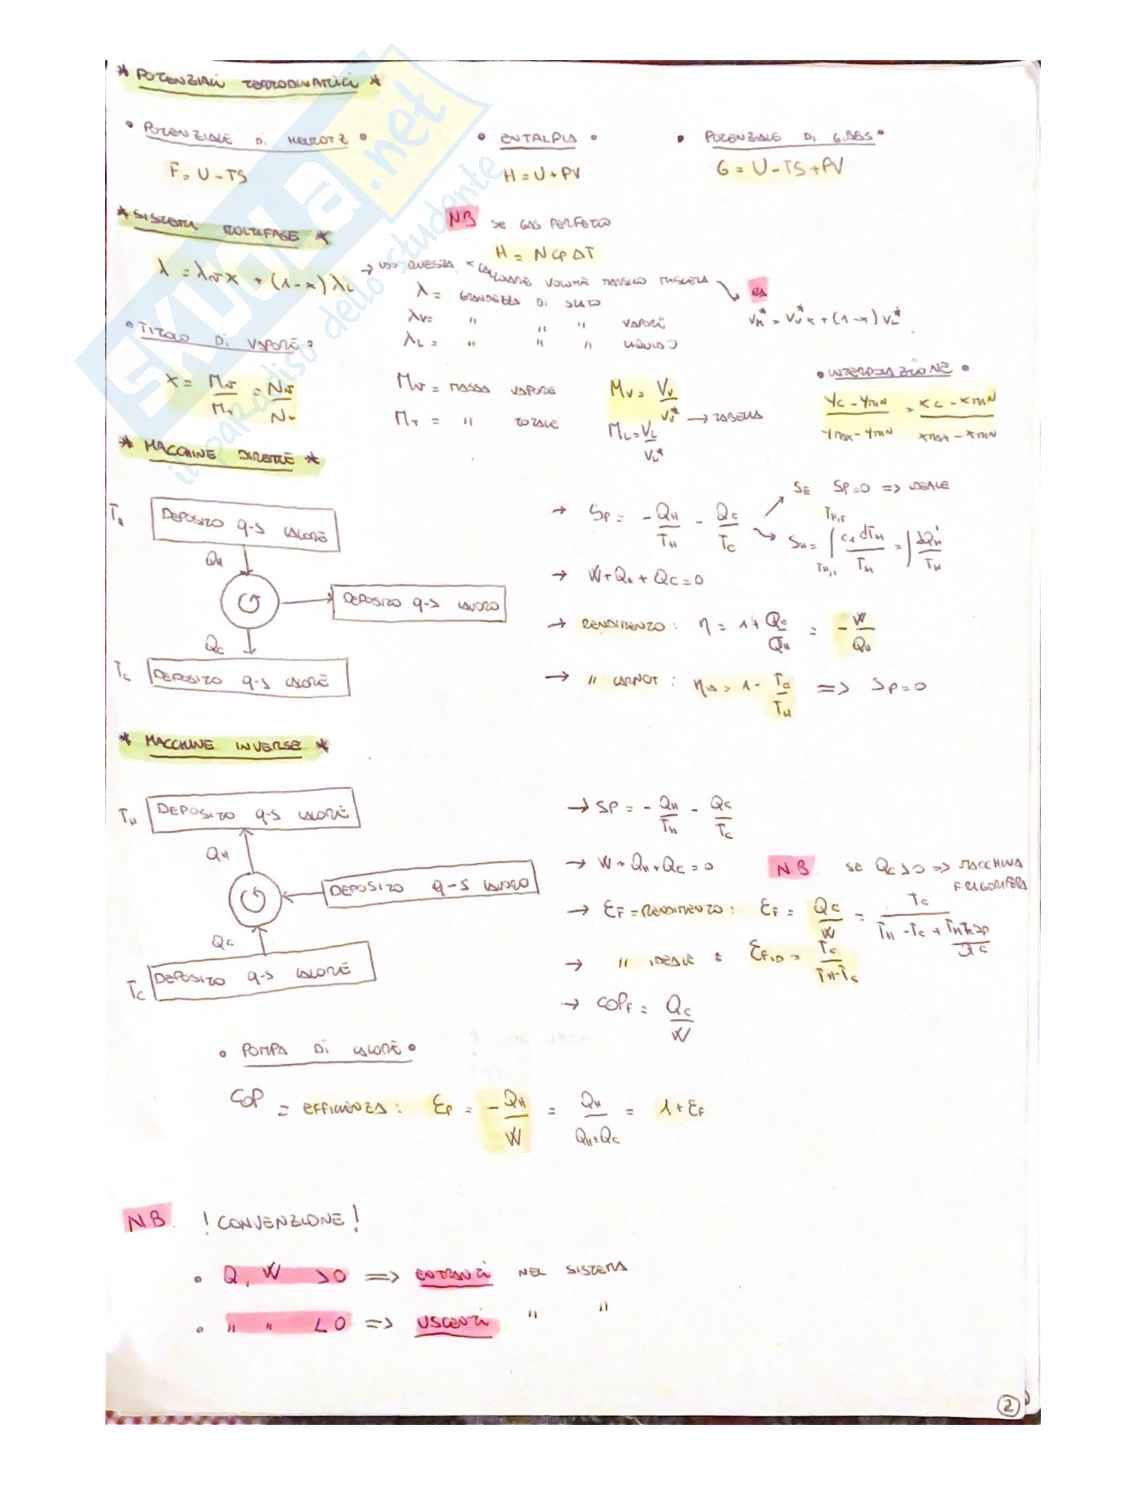 * POTENZIALI TERMODINAMICI *
• POTENZIALE DI HELMOTZ •
• ENTALPIA •
• POTENZIALE DI GIBBS •
F = U - TS
H = U + PV
G = U - TS + PV
* SISTEMA MULTIFASE *
NB SE GAS PERFETTO
H = N CP ΔT
λ = λv x + (1-x) λL
→ USO QUESTA × CALCOLARE VOLUME MASSICO MISCELA → ES
λ = GRANDEZZA DI STATO
VM* = VV* x + (1-x) VL*
λV = " " " VAPORE
λL = " " " LIQUIDO
• TITOLO DI VAPORE •
x = Mv/MT = Nv/NT
Mv = MASSA VAPORE
MT = " TOTALE
MV = VV/VV* → TABELLA
ML = VL/VL*
• INTERPOLAZIONE •
(YC - YMIN)/(YMAX - YMIN) = (XC - XMIN)/(XMAX - XMIN)
* MACCHINE DIRETTE *
TH DEPOSITO q-s CALORE
QH
DEPOSITO q-s LAVORO
QC
TC DEPOSITO q-s CALORE
→ SP = - QH/TH - QC/TC
SE SP=0 => IDEALE
SH = ∫ C1 dTH/TH = ∫ δQH/TH
→ W + QH + QC = 0
→ RENDIMENTO : η = 1 + QC/QH = - W/QH
→ " CARNOT : ηID = 1 - TC/TH => SP=0
* MACCHINE INVERSE *
TH DEPOSITO q-s CALORE
QH
DEPOSITO q-s LAVORO
QC
TC DEPOSITO q-s CALORE
→ SP = - QH/TH - QC/TC
→ W + QH + QC = 0
NB SE QC > 0 => MACCHINA FRIGORIFERA
→ εF = RENDIMENTO : εF = QC/W = TC/(TH - TC + TH TC SP/QC)
→ " IDEALE : εF,ID = TC/(TH-TC)
→ COPF = QC/W
• POMPA DI CALORE •
COP = EFFICIENZA : εP = - QH/W = QH/(QH+QC) = 1 + εF
NB ! CONVENZIONE !
• Q, W > 0 => ENTRANTI NEL SISTEMA
• " " < 0 => USCENTI " "
2
SKUOLA.net
il paradiso dello studente